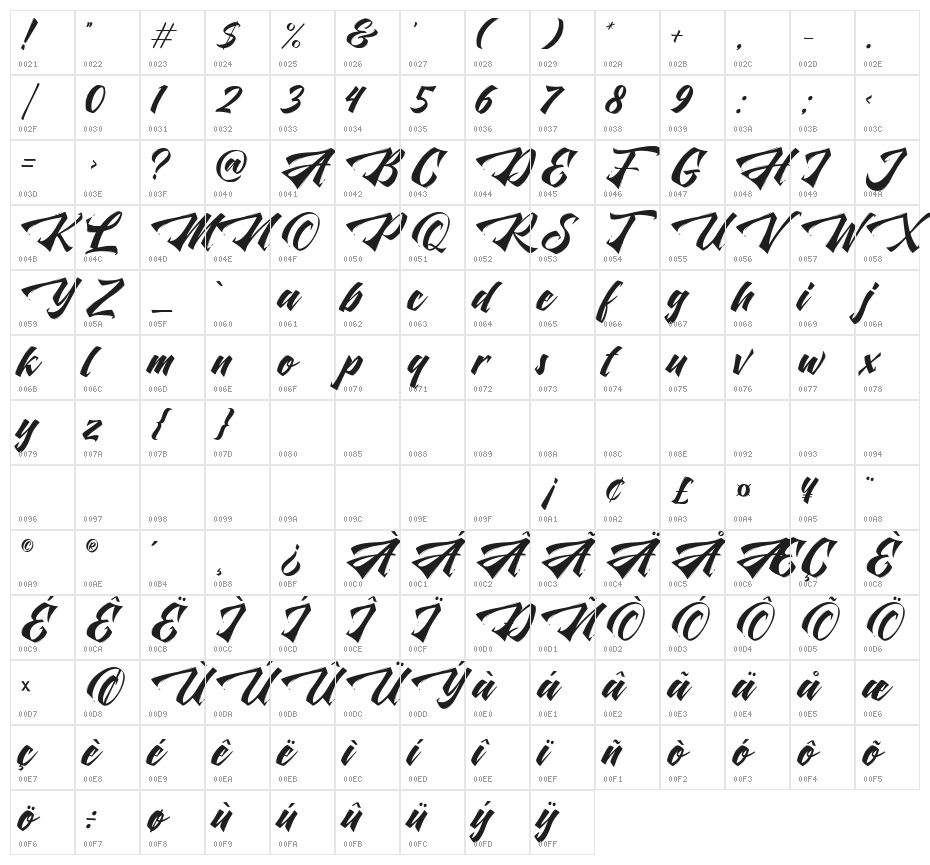 ! " # $ % & ' ( ) * + , - .
0021 0022 0023 0024 0025 0026 0027 0028 0029 002A 002B 002C 002D 002E
/ 0 1 2 3 4 5 6 7 8 9 : ; <
002F 0030 0031 0032 0033 0034 0035 0036 0037 0038 0039 003A 003B 003C
= > ? @ A B C D E F G H I J
003D 003E 003F 0040 0041 0042 0043 0044 0045 0046 0047 0048 0049 004A
K L M N O P Q R S T U V W X
004B 004C 004D 004E 004F 0050 0051 0052 0053 0054 0055 0056 0057 0058
Y Z _ ` a b c d e f g h i j
0059 005A 005F 0060 0061 0062 0063 0064 0065 0066 0067 0068 0069 006A
k l m n o p q r s t u v w x
006B 006C 006D 006E 006F 0070 0071 0072 0073 0074 0075 0076 0077 0078
y z { }
0079 007A 007B 007D 0080 0085 0088 0089 008A 008C 008E 0092 0093 0094
¡ ¢ £ ¤ ¥ ¨
0096 0097 0098 0099 009A 009C 009E 009F 00A1 00A2 00A3 00A4 00A5 00A8
© ® ´ ¸ ¿ À Á Â Ã Ä Å Æ Ç È
00A9 00AE 00B4 00B8 00BF 00C0 00C1 00C2 00C3 00C4 00C5 00C6 00C7 00C8
É Ê Ë Ì Í Î Ï Ð Ñ Ò Ó Ô Õ Ö
00C9 00CA 00CB 00CC 00CD 00CE 00CF 00D0 00D1 00D2 00D3 00D4 00D5 00D6
× Ø Ù Ú Û Ü Ý à á â ã ä å æ
00D7 00D8 00D9 00DA 00DB 00DC 00DD 00E0 00E1 00E2 00E3 00E4 00E5 00E6
ç è é ê ë ì í î ï ñ ò ó ô õ
00E7 00E8 00E9 00EA 00EB 00EC 00ED 00EE 00EF 00F1 00F2 00F3 00F4 00F5
ö ÷ ø ù ú û ü ý ÿ
00F6 00F7 00F8 00F9 00FA 00FB 00FC 00FD 00FF